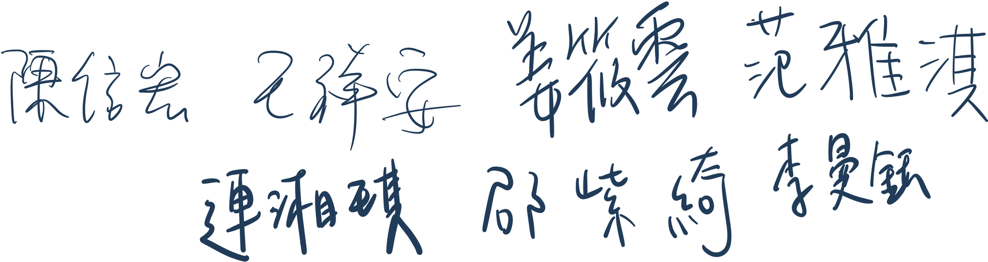 陳信宏 王祥安 姜筱雲 范雅淇
連湘琪 邵紫綺 李曼鈺